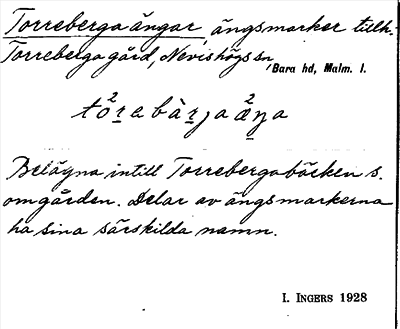 Torreberga ängar, ängsmarker tillh.
Torreberga gård, Nevishögs sn,
Bara hd, Malm. l.
Belägna intill Torrebergabäcken s.
om gården. Delar av ängsmarkerna
ha sina särskilda namn.
I. INGERS 1928